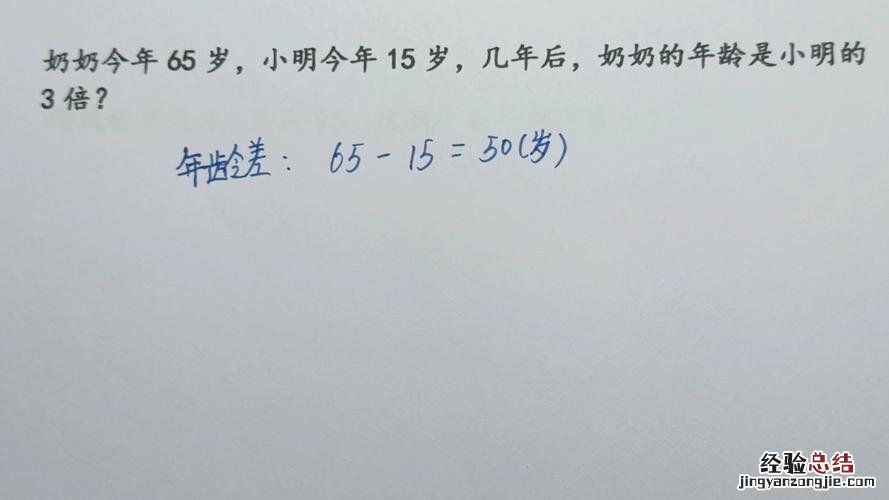 奶奶今年 65 岁，小明今年 15 岁，几年后，奶奶的年龄是小明的
3 倍？
年龄差： 65 - 15 = 50(岁)
经验总结
jingyanzongjie.com